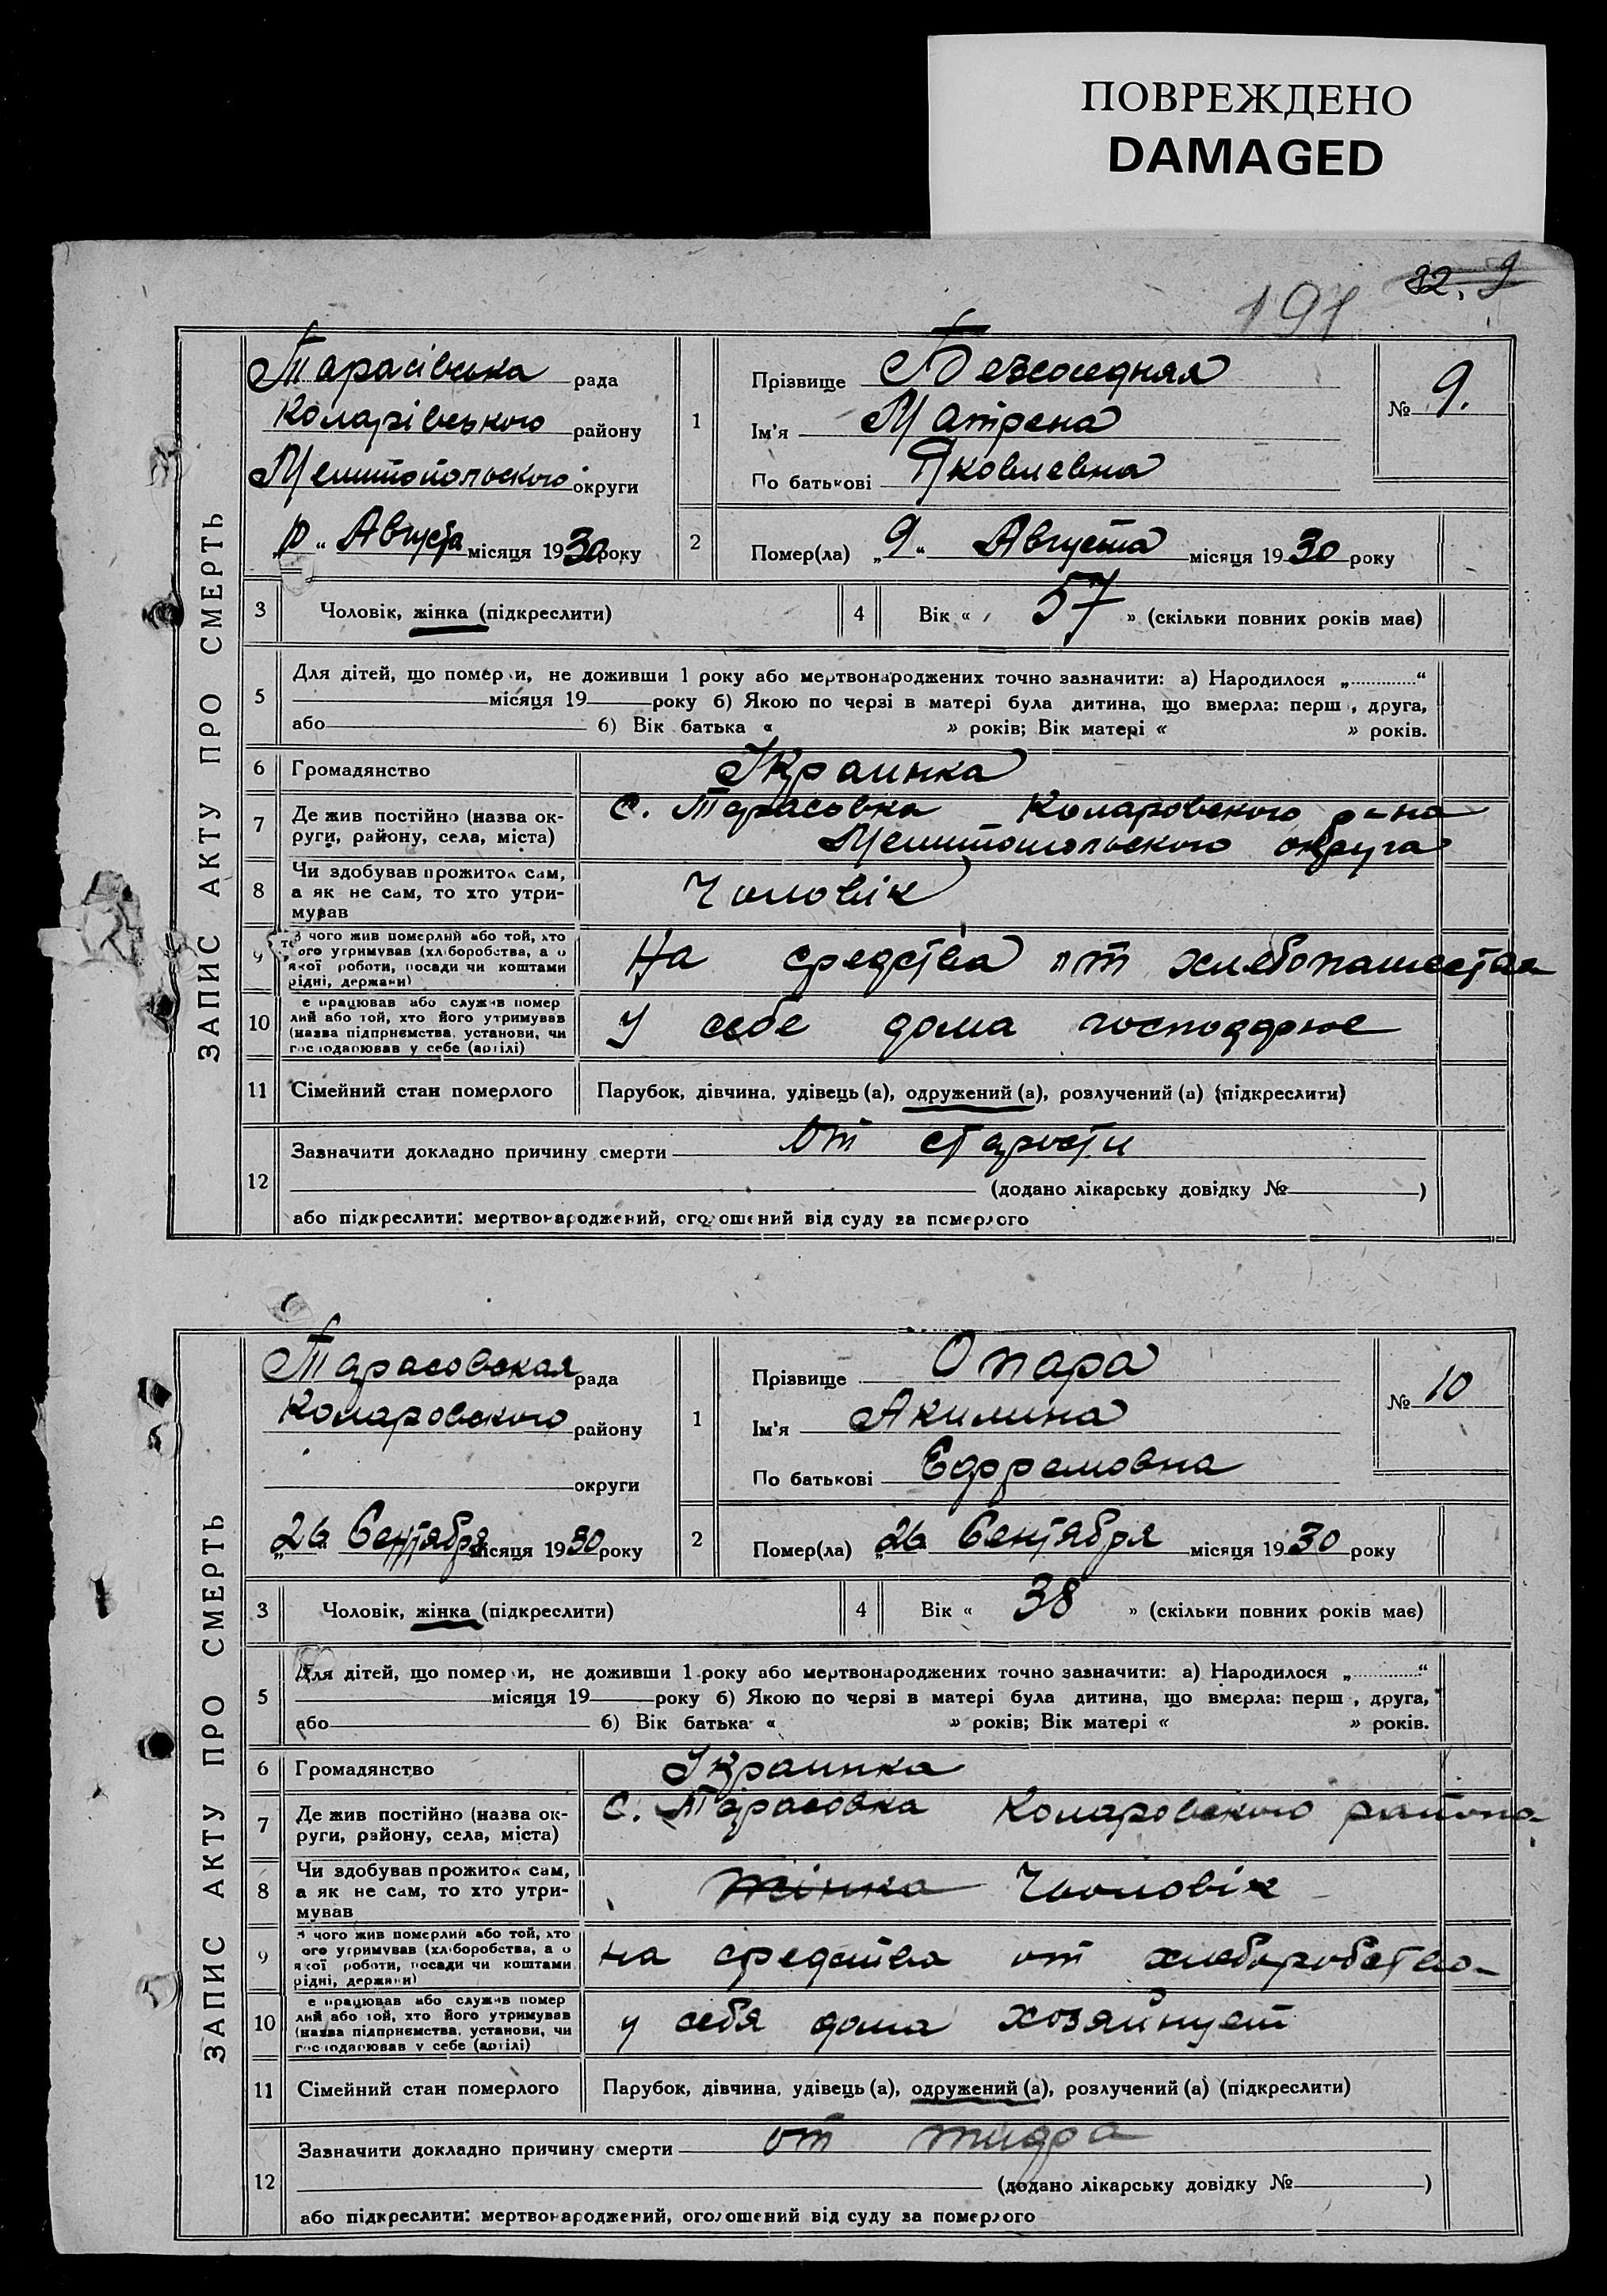 ПОВРЕЖДЕНО
DAMAGED
32. 9
191
ЗАПИС АКТУ ПРО СМЕРТЬ
Тарасівська рада
Коларівського району
Мелитопольского округи
10 " Августа місяця 1930 року
1
Прізвище Безсоседняя
Ім'я Матрена
По батькові Яковлевна
№ 9.
2
Помер(ла) „9" Августа місяця 1930 року
3 Чоловік, жінка (підкреслити)
4 Вік « 57 » (скільки повних років має)
5
Для дітей, що помер и, не доживши 1 року або мертвонароджених точно зазначити: а) Народилося „............“
місяця 19 року б) Якою по черзі в матері була дитина, що вмерла: перш , друга,
або б) Вік батька « » років; Вік матері « » років.
6 Громадянство Украинка
7 Де жив постійно (назва ок-
руги, району, села, міста)
С. Тарасовка Коларовского р-на
Мелитопольского округа
8 Чи здобував прожиток сам,
а як не сам, то хто утри-
мував
Чоловік
9 З чого жив померлий або той, хто
ого утримував (хліборобства, а о
якої роботи, посади чи коштами
рідні, держави)
На средства от хлебопашества
10 е працював або служив помер
лий або той, хто його утримував
(назва підприємства, установи, чи
господарював у себе (артілі)
У себе дома господарює
11 Сімейний стан померлого Парубок, дівчина, удівець (а), одружений (а), розлучений (а) (підкреслити)
12
Зазначити докладно причину смерти от старости
(додано лікарську довідку № )
або підкреслити: мертвонароджений, оголошений від суду за померлого
ЗАПИС АКТУ ПРО СМЕРТЬ
Тарасовская рада
Коларовского району
округи
„26 Сентября місяця 1930 року
1
Прізвище Опара
Ім'я Акилина
По батькові Ефремовна
№ 10
2
Помер(ла) „26 Сентября місяця 1930 року
3 Чоловік, жінка (підкреслити)
4 Вік « 38 » (скільки повних років має)
5
Для дітей, що помер и, не доживши 1 року або мертвонароджених точно зазначити: а) Народилося „............“
місяця 19 року б) Якою по черзі в матері була дитина, що вмерла: перш , друга,
або б) Вік батька « » років; Вік матері « » років.
6 Громадянство Украинка
7 Де жив постійно (назва ок-
руги, району, села, міста)
С. Тарасовка Коларовского района
8 Чи здобував прожиток сам,
а як не сам, то хто утри-
мував
Жінка Чоловік
9 З чого жив померлий або той, хто
ого утримував (хліборобства, а о
якої роботи, посади чи коштами
рідні, держави)
на средства от хлеборобства
10 е працював або служив помер
лий або той, хто його утримував
(назва підприємства, установи, чи
господарював у себе (артілі)
у себя дома хозяйнует
11 Сімейний стан померлого Парубок, дівчина, удівець (а), одружений (а), розлучений (а) (підкреслити)
12
Зазначити докладно причину смерти от
(додано лікарську довідку № )
або підкреслити: мертвонароджений, оголошений від суду за померлого